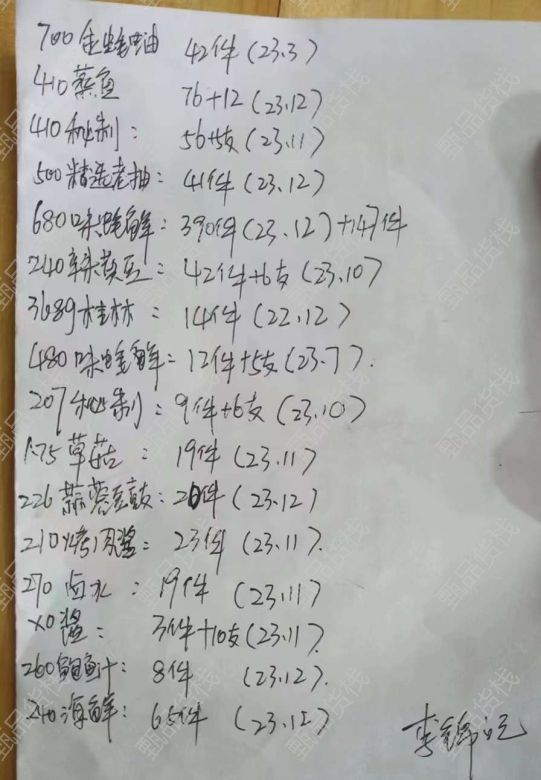 700金蚝油 42件(23.3)
410蒸鱼 76+12(23.12)
410秘制: 56+5支(23.11)
500精选老抽: 41件(23.12)
680味蚝鲜: 390件(23.12)+147件
240辛辣黄豆: 42件+6支(23.10)
368g桂林: 14件(22.12)
480味蚝鲜: 12件+5支(23.7)
207秘制: 9件+6支(23.10)
1.75草菇: 19件(23.11)
226蒜蓉豆豉: 20件(23.12)
210烤肉酱: 23件(23.11)
270卤水: 19件(23.11)
XO酱: 3件+10支(23.11)
260鲍鱼汁: 8件(23.12)
240海鲜: 65件(23.12)
李锦记
甄品货栈